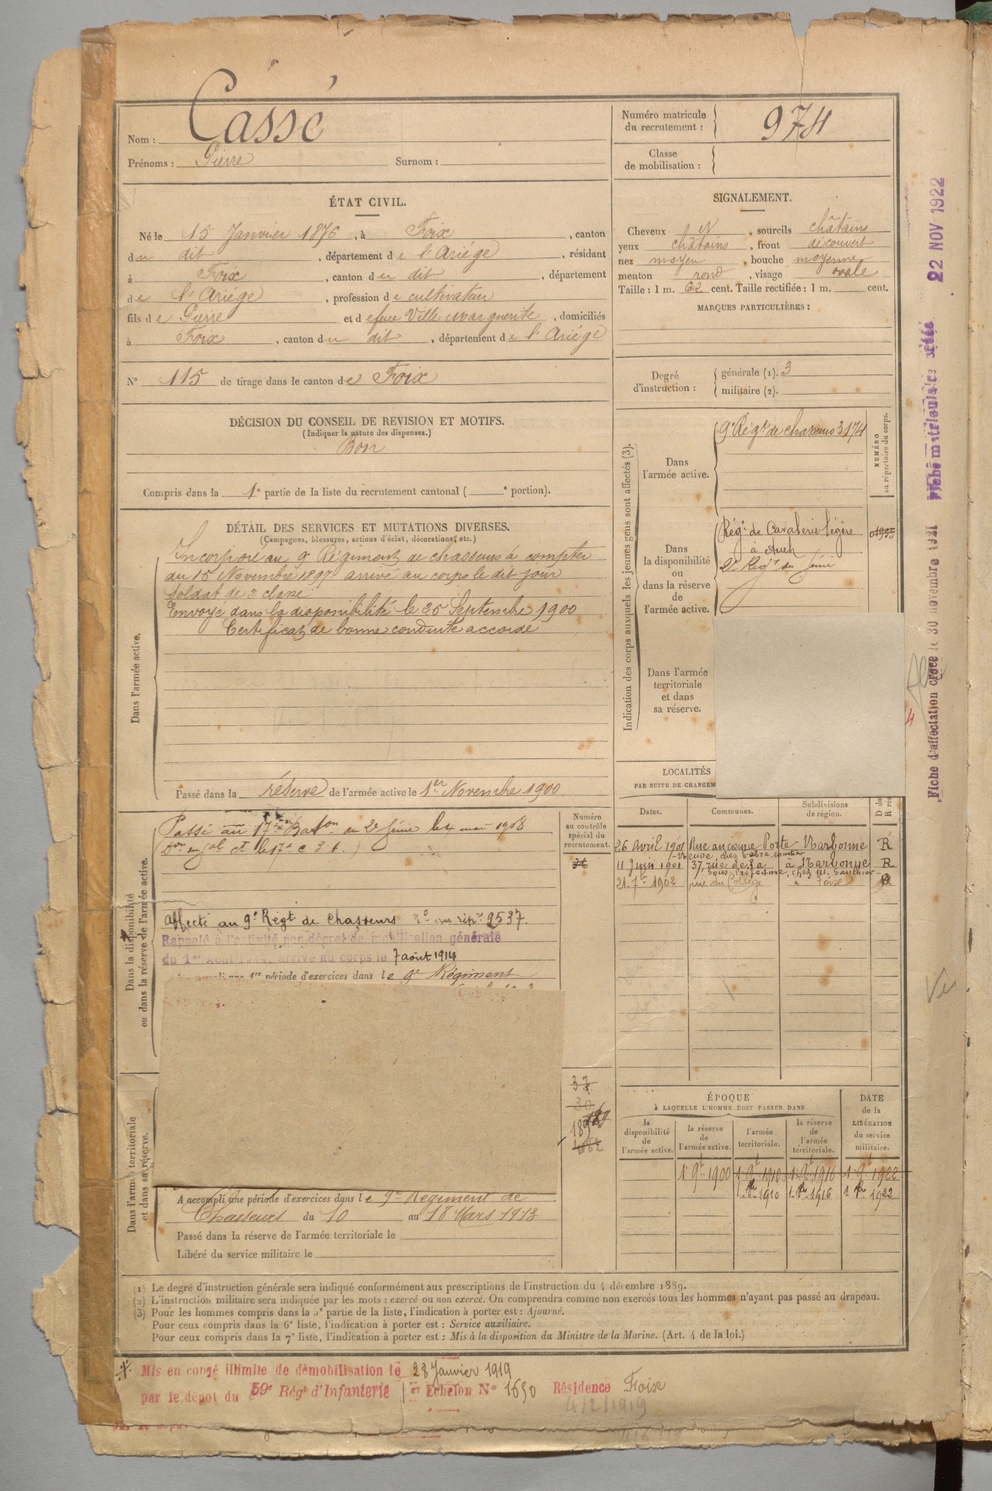 Nom : Cassé
Prénoms : Pierre Surnom :
Numéro matricule du recrutement : 974
Classe de mobilisation :
ÉTAT CIVIL.
Né le 15 Janvier 1876, à Foix, canton
du dit, département de l'Ariége, résidant
à Foix, canton du dit, département
de l'Ariége, profession de cultivateur
fils de Pierre et de feue Ville Marguerite, domiciliés
à Foix, canton du dit, département de l'Ariége
N° 115 de tirage dans le canton de Foix
SIGNALEMENT.
Cheveux N, sourcils châtains
yeux châtains, front découvert
nez moyen, bouche moyenne
menton rond, visage ovale
Taille : 1 m. 62 cent. Taille rectifiée : 1 m. cent.
MARQUES PARTICULIÈRES :
Degré d'instruction : générale (1). 3
militaire (2).
DÉCISION DU CONSEIL DE REVISION ET MOTIFS.
(Indiquer la nature des dispenses.)
Bon
Compris dans la 1e partie de la liste du recrutement cantonal ( e portion).
DÉTAIL DES SERVICES ET MUTATIONS DIVERSES.
(Campagnes, blessures, actions d'éclat, décorations, etc.)
Dans l'armée active.
Incorporé au 9e Régiment de chasseurs à compter
du 15 Novembre 1897 arrivé au corps le dit jour
soldat de 2e classe
Envoyé dans la disponibilité le 25 Septembre 1900
Certificat de bonne conduite accordé
Passé dans la réserve de l'armée active le 1er Novembre 1900
Indication des corps auxquels les jeunes gens sont affectés (3).
Dans l'armée active.
9e Régt de chasseurs 3174
NUMÉRO au répertoire du corps.
Dans la disponibilité ou dans la réserve de l'armée active.
Régt de Cavalerie légère
à Auch
2e Régt du Génie
Dans l'armée territoriale et dans sa réserve.
LOCALITÉS
PAR SUITE DE CHANGEM
Dates. Communes. Subdivisions de région.
26 Avril 1901 Rue ancienne Porte Narbonne R
11 Juin 1901 37, rue de la à Narbonne R
21 7re 1902 rue du Collège à Foix
Dans la disponibilité ou dans la réserve de l'armée active.
Passé au 17e Baton du 2e Génie le 4 mai 1908
Numéro au contrôle spécial du recrutement.
Affecté au 9e Régt de Chasseurs 2537.
Rappelé à l'activité par décret de mobilisation générale
du 1er Août 1914, arrivé au corps le 7 août 1914
1re période d'exercices dans le 9e Régiment
Dans l'armée territoriale et dans sa réserve.
37
30
A accompli une période d'exercices dans le 9e Régiment de
Chasseurs du 10 au 18 Mars 1913
Passé dans la réserve de l'armée territoriale le
Libéré du service militaire le
ÉPOQUE
À LAQUELLE L'HOMME DOIT PASSER DANS
la disponibilité de l'armée active.
la réserve de l'armée active.
l'armée territoriale.
la réserve de l'armée territoriale.
DATE de la LIBÉRATION du service militaire.
1 9bre 1900 1 9bre 1910 1 9bre 1916 1 9bre 1922
1 8bre 1910 1 8bre 1916 1 8bre 1922
(1) Le degré d'instruction générale sera indiqué conformément aux prescriptions de l'instruction du 4 décembre 1889.
(2) L'instruction militaire sera indiquée par les mots : exercé ou non exercé. On comprendra comme non exercés tous les hommes n'ayant pas passé au drapeau.
(3) Pour les hommes compris dans la 5e partie de la liste, l'indication à porter est : Ajourné.
Pour ceux compris dans la 6e liste, l'indication à porter est : Service auxiliaire.
Pour ceux compris dans la 7e liste, l'indication à porter est : Mis à la disposition du Ministre de la Marine. (Art. 4 de la loi.)
Mis en congé illimité de démobilisation le 28 Janvier 1919
par le dépôt du 59e Régt d'Infanterie er Echelon N° 1650 Résidence Foix
4/2/1919
Fiche d'affectation créée le 30 novembre 1921
Fiche matriculaire créée 22 NOV 1922